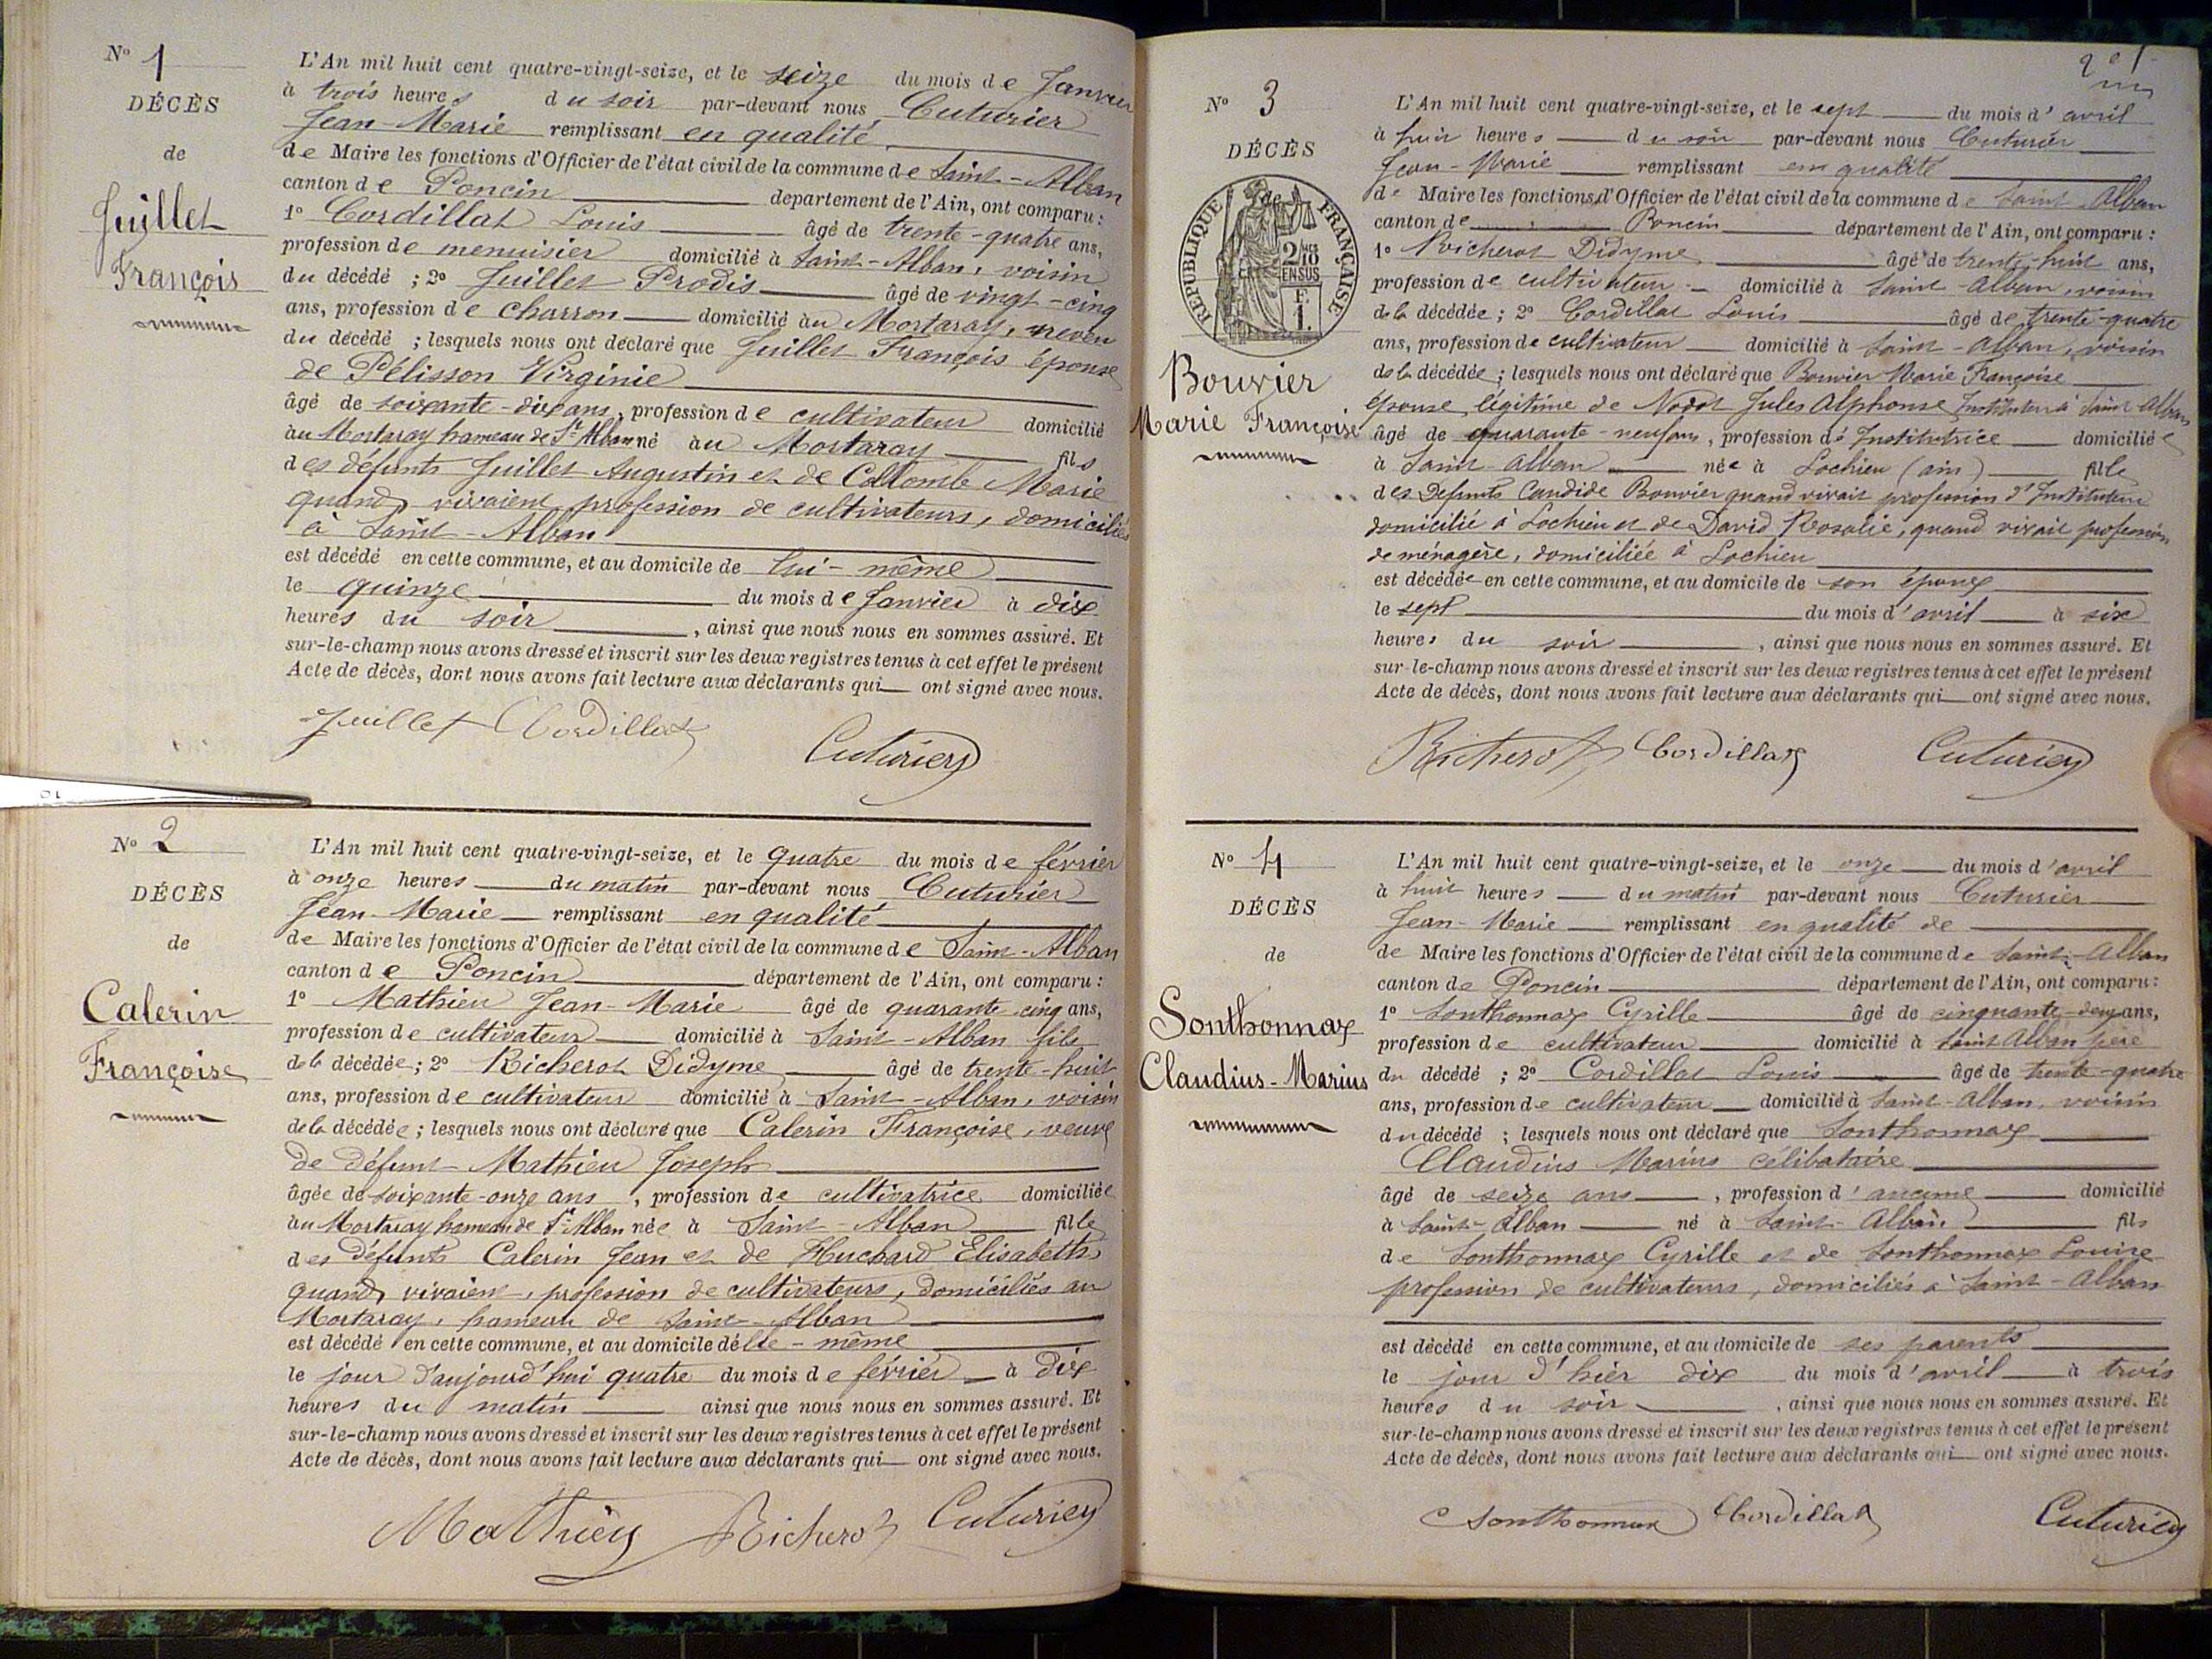 N° 1
DÉCÈS
de
Juillet
François
L'An mil huit cent quatre-vingt-seize, et le seize du mois de Janvier
à trois heures du soir par-devant nous Cuturier
Jean-Marie remplissant en qualité
de Maire les fonctions d'Officier de l'état civil de la commune de Saint-Alban
canton de Poncin département de l'Ain, ont comparu :
1° Cordillat Louis âgé de trente-quatre ans,
profession de menuisier domicilié à Saint-Alban, voisin
du décédé ; 2° Juillet Prodis âgé de vingt-cinq
ans, profession de charron domicilié au Mortaray, neveu
du décédé ; lesquels nous ont déclaré que Juillet François époux
de Pélisson Virginie
âgé de soixante-dix ans, profession de cultivateur domicilié
au Mortaray hameau de St Alban né au Mortaray fils
des défunts Juillet Augustin et de Collomb Marie
quand vivaient profession de cultivateurs, domiciliés
à Saint-Alban
est décédé en cette commune, et au domicile de lui-même
le quinze du mois de Janvier à dix
heures du soir, ainsi que nous nous en sommes assuré. Et
sur-le-champ nous avons dressé et inscrit sur les deux registres tenus à cet effet le présent
Acte de décès, dont nous avons fait lecture aux déclarants qui ont signé avec nous.
Juillet Cordillat Cuturier
N° 2
DÉCÈS
de
Calerin
Françoise
L'An mil huit cent quatre-vingt-seize, et le quatre du mois de février
à onze heures du matin par-devant nous Cuturier
Jean-Marie remplissant en qualité
de Maire les fonctions d'Officier de l'état civil de la commune de Saint-Alban
canton de Poncin département de l'Ain, ont comparu :
1° Mathieu Jean-Marie âgé de quarante-cinq ans,
profession de cultivateur domicilié à Saint-Alban fils
de la décédée ; 2° Richerot Didyme âgé de trente-huit
ans, profession de cultivateur domicilié à Saint-Alban, voisin
de la décédée ; lesquels nous ont déclaré que Calerin Françoise, veuve
de défunt Mathieu Joseph
âgée de soixante-onze ans, profession de cultivatrice domiciliée
au Mortaray hameau de St Alban née à Saint-Alban fille
des défunts Calerin Jean et de Huchard Elisabeth
quand vivaient, profession de cultivateurs, domiciliés au
Mortaray, hameau de Saint-Alban
est décédé en cette commune, et au domicile d'elle-même
le jour d'aujourd'hui quatre du mois de février à dix
heures du matin ainsi que nous nous en sommes assuré. Et
sur-le-champ nous avons dressé et inscrit sur les deux registres tenus à cet effet le présent
Acte de décès, dont nous avons fait lecture aux déclarants qui ont signé avec nous.
Mathieu Richerot Cuturier
N° 3
DÉCÈS
de
RÉPUBLIQUE FRANÇAISE
2/10 EN SUS
F.
1.
Bouvier
Marie Françoise
L'An mil huit cent quatre-vingt-seize, et le sept du mois d'avril
à huit heures du soir par-devant nous Cuturier
Jean-Marie remplissant en qualité
de Maire les fonctions d'Officier de l'état civil de la commune de Saint-Alban
canton de Poncin département de l'Ain, ont comparu :
1° Richerot Didyme âgé de trente-huit ans,
profession de cultivateur domicilié à Saint-Alban, voisin
de la décédée ; 2° Cordillat Louis âgé de trente-quatre
ans, profession de cultivateur domicilié à Saint-Alban, voisin
de la décédée ; lesquels nous ont déclaré que Bouvier Marie Françoise
épouse légitime de Nodot Jules Alphonse Instituteur à Saint-Alban
âgé de quarante-neuf ans, profession d'Institutrice domiciliée
à Saint-Alban née à Lochieu (ain) fille
des Défunts Candide Bouvier quand vivait profession d'Instituteur
domicilié à Lochieu et de David Rosalie, quand vivait profession
de ménagère, domiciliée à Lochieu
est décédée en cette commune, et au domicile de son époux
le sept du mois d'avril à six
heures du soir, ainsi que nous nous en sommes assuré. Et
sur-le-champ nous avons dressé et inscrit sur les deux registres tenus à cet effet le présent
Acte de décès, dont nous avons fait lecture aux déclarants qui ont signé avec nous.
Richerot Cordillat Cuturier
N° 4
DÉCÈS
de
Sonthonnax
Claudius-Marius
L'An mil huit cent quatre-vingt-seize, et le onze du mois d'avril
à huit heures du matin par-devant nous Cuturier
Jean-Marie remplissant en qualité de
de Maire les fonctions d'Officier de l'état civil de la commune de Saint-Alban
canton de Poncin département de l'Ain, ont comparu :
1° Sonthonnax Cyrille âgé de cinquante-deux ans,
profession de cultivateur domicilié à Saint Alban père
du décédé ; 2° Cordillat Louis âgé de trente-quatre
ans, profession de cultivateur domicilié à Saint-Alban, voisin
du décédé ; lesquels nous ont déclaré que Sonthonnax
Claudius Marius célibataire
âgé de seize ans, profession d'aucune domicilié
à Saint-Alban né à Saint-Alban fils
de Sonthonnax Cyrille et de Sonthonnax Louise
profession de cultivateurs, domiciliés à Saint-Alban
est décédé en cette commune, et au domicile de ses parents
le jour d'hier dix du mois d'avril à trois
heures du soir, ainsi que nous nous en sommes assuré. Et
sur-le-champ nous avons dressé et inscrit sur les deux registres tenus à cet effet le présent
Acte de décès, dont nous avons fait lecture aux déclarants qui ont signé avec nous.
Sonthonnax Cordillat Cuturier